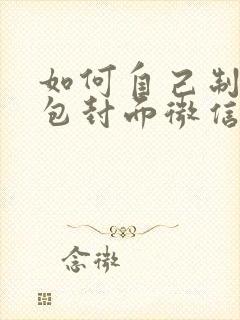 如何自己制
包封面微信
念微